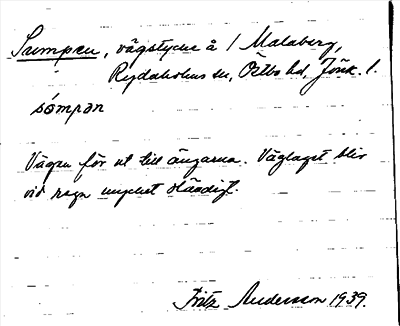 Sumpen, vägstycke å 1 Malaberg,
Rydaholms sn, Östbo hd, Jönk. l.
sómpən
Vägen för ut till ängarna. Väglaget blir
vid regn mycket eländigt.
Fritz Andersson 1939.